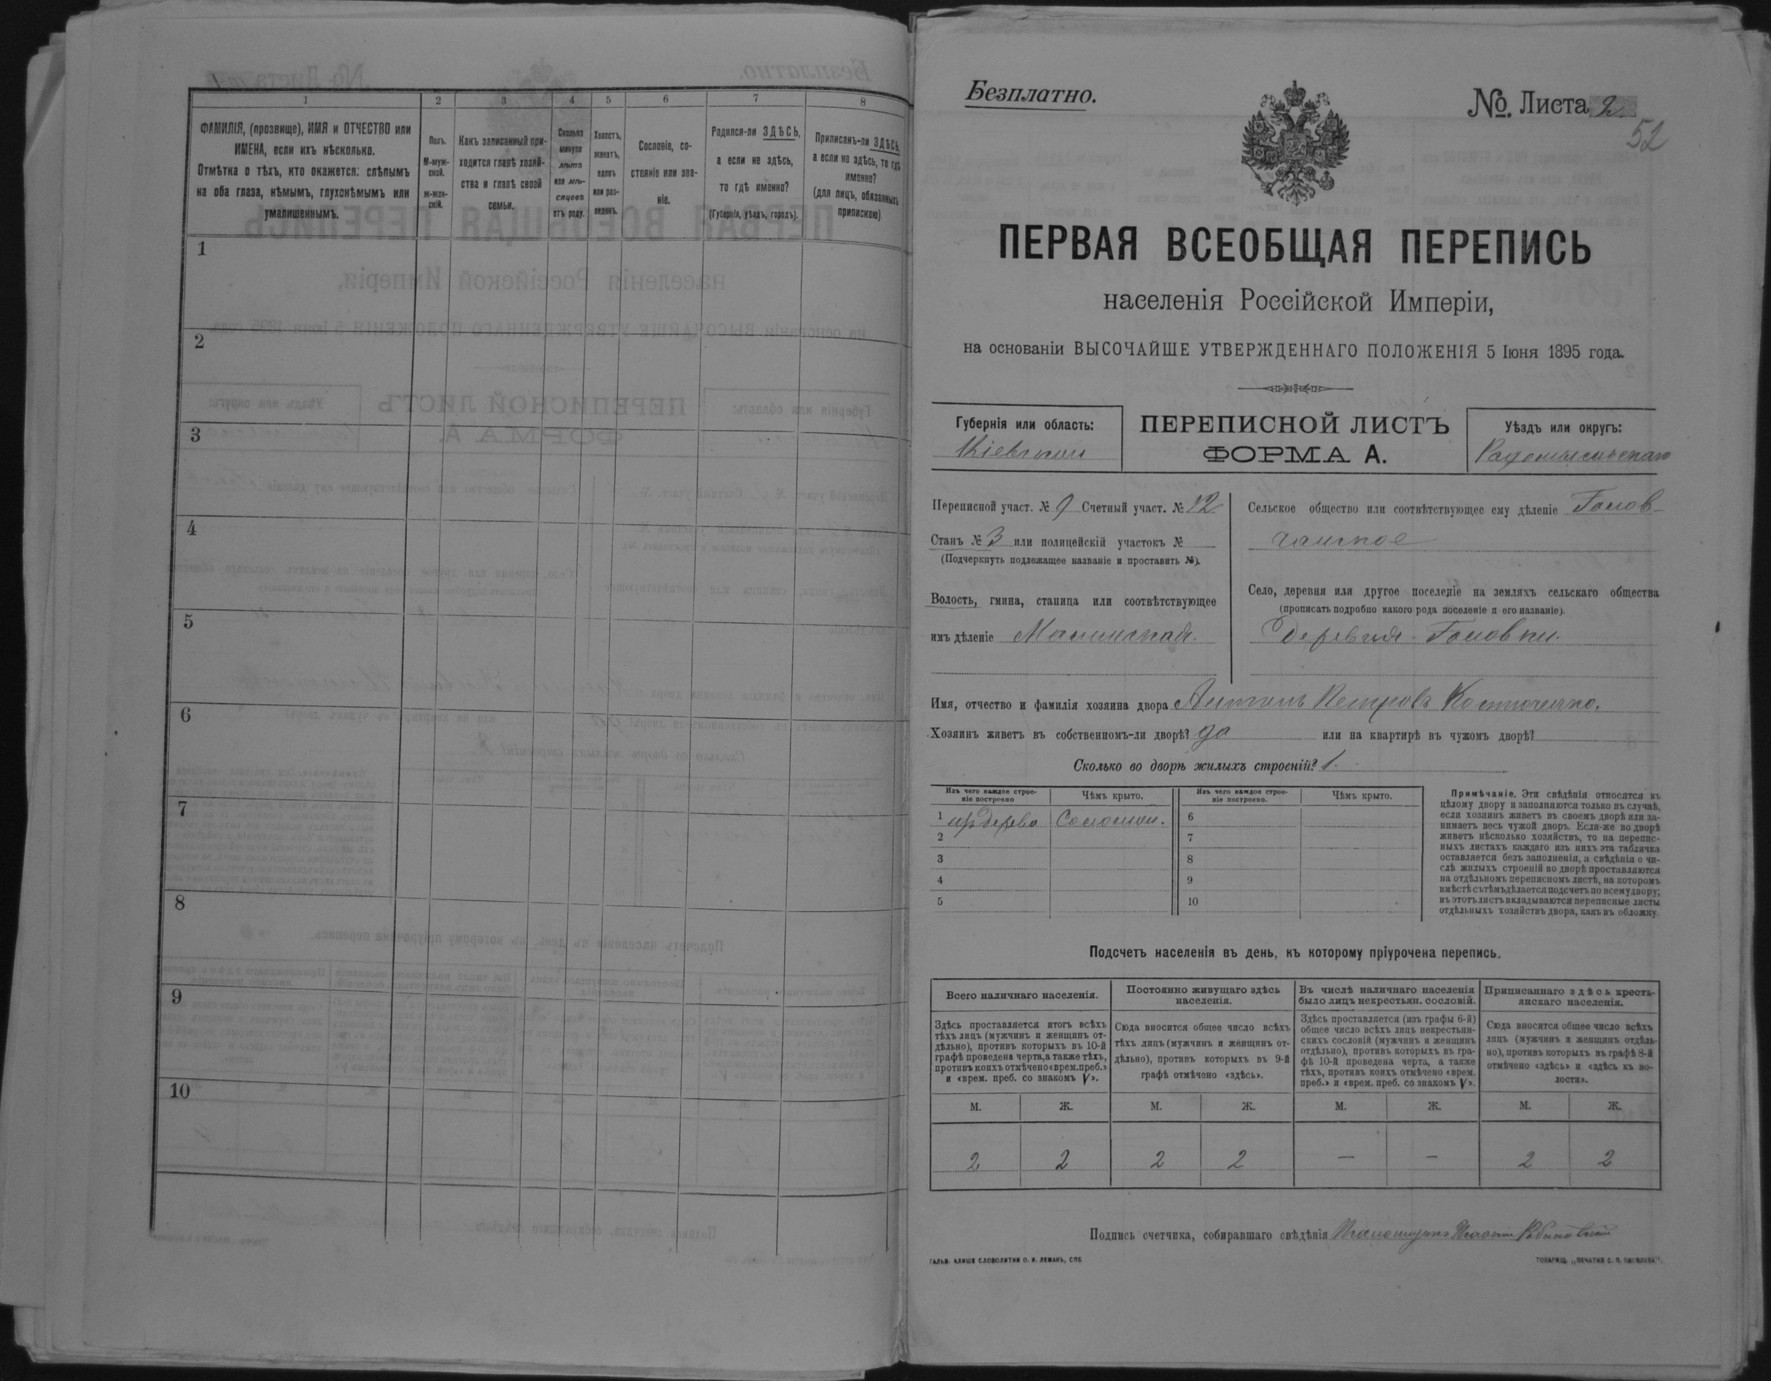 1 2 3 4 5 6 7 8
ФАМИЛІЯ, (прозвище), ИМЯ и ОТЧЕСТВО или
ИМЕНА, если ихъ нѣсколько.
Отмѣтка о тѣхъ, кто окажется: слѣпымъ
на оба глаза, нѣмымъ, глухонѣмымъ или
умалишеннымъ.
Полъ.
М-муж-
ской.
ж-жен-
скій.
Какъ записанный при-
ходится главѣ хозяй-
ства и главѣ своей
семьи.
Сколько
минуло
лѣтъ
или мѣ-
сяцевъ
отъ роду.
Холостъ,
женатъ,
вдовъ
или раз-
веденъ.
Сословіе, со-
стояніе или зва-
ніе.
Родился-ли ЗДѢСЬ,
а если не здѣсь,
то гдѣ именно?
(Губернія, уѣздъ, городъ).
Приписанъ-ли ЗДѢСЬ,
а если не здѣсь, то гдѣ
именно?
(для лицъ, обязанныхъ
припискою)
1
2
3
4
5
6
7
8
9
10
Безплатно.
№. Листа 2
52
ПЕРВАЯ ВСЕОБЩАЯ ПЕРЕПИСЬ
населенія Россійской Имперіи,
на основаніи ВЫСОЧАЙШЕ УТВЕРЖДЕННАГО ПОЛОЖЕНІЯ 5 Іюня 1895 года.
Губернія или область:
Кіевская
ПЕРЕПИСНОЙ ЛИСТЪ
ФОРМА А.
Уѣздъ или округъ:
Радомысльскаго
Переписной участ. № 9 Счетный участ. № 12
Станъ № 3 или полицейскій участокъ №
(Подчеркнуть подлежащее названіе и проставить №).
Волость, гмина, станица или соотвѣтствующее
имъ дѣленіе Малинская.
Сельское общество или соотвѣтствующее ему дѣленіе Голов-
чанское
Село, деревня или другое поселеніе на земляхъ сельскаго общества
(прописать подробно какого рода поселеніе и его названіе).
Деревня Головки.
Имя, отчество и фамилія хозяина двора Антонъ Петровъ Костюченко.
Хозяинъ живетъ въ собственномъ-ли дворѣ? да или на квартирѣ въ чужомъ дворѣ?
Сколько во дворѣ жилыхъ строеній? 1.
Изъ чего каждое строе-
ніе построено
Чѣмъ крыто.
Изъ чего каждое строе-
ніе построено.
Чѣмъ крыто.
1 изъ дерева Соломой. 6
2 7
3 8
4 9
5 10
Примѣчаніе. Эти свѣдѣнія относятся къ
цѣлому двору и заполняются только въ случаѣ,
если хозяинъ живетъ въ своемъ дворѣ или за-
нимаетъ весь чужой дворъ. Если-же во дворѣ
живетъ нѣсколько хозяйствъ, то на перепис-
ныхъ листахъ каждаго изъ нихъ эта табличка
оставляется безъ заполненія, а свѣдѣнія о чи-
слѣ жилыхъ строеній во дворѣ проставляются
на отдѣльномъ переписномъ листѣ, на которомъ
вмѣстѣ съ тѣмъ дѣлается подсчетъ по всему двору;
въ этотъ листъ вкладываются переписные листы
отдѣльныхъ хозяйствъ двора, какъ въ обложку.
Подсчетъ населенія въ день, къ которому пріурочена перепись.
Всего наличнаго населенія.
Постоянно живущаго здѣсь
населенія.
Въ числѣ наличнаго населенія
было лицъ некрестьян. сословій.
Приписаннаго здѣсь кресть-
янскаго населенія.
Здѣсь проставляется итогъ всѣхъ
тѣхъ лицъ (мужчинъ и женщинъ от-
дѣльно), противъ которыхъ въ 10-й
графѣ проведена черта, а также тѣхъ,
противъ коихъ отмѣчено «врем. преб.»
и «врем. преб. со знакомъ V».
Сюда вносится общее число всѣхъ
тѣхъ лицъ (мужчинъ и женщинъ от-
дѣльно), противъ которыхъ въ 9-й
графѣ отмѣчено «здѣсь».
Здѣсь проставляется (изъ графы 6-й)
общее число всѣхъ лицъ некрестьян-
скихъ сословій (мужчинъ и женщинъ
отдѣльно), противъ которыхъ въ гра-
фѣ 10-й проведена черта, а также
тѣхъ, противъ коихъ отмѣчено «врем.
преб.» и «врем. преб. со знакомъ V».
Сюда вносится общее число всѣхъ
лицъ (мужчинъ и женщинъ отдѣль-
но), противъ которыхъ въ графѣ 8-й
отмѣчено «здѣсь» и «здѣсь къ во-
лости».
М. Ж. М. Ж. М. Ж. М. Ж.
2 2 2 2 — — 2 2
Подпись счетчика, собиравшаго свѣдѣнія
ГАЛЬВ. КЛИШЕ СЛОВОЛИТНИ О. И. ЛЕМАНЪ, СПБ
ТОВАРИЩ. „ПЕЧАТНЯ С. П. ЯКОВЛЕВА".